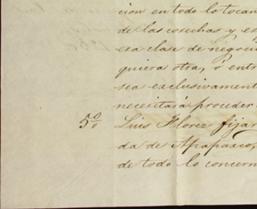 cion en todo lo tocan
de las cosechas y es
esa clase de negocio
quiera otra, ó entr
sea exclusivament
necesitará proceder
5º Luis Florez fijar
da de Apapasco,
de todo lo concern